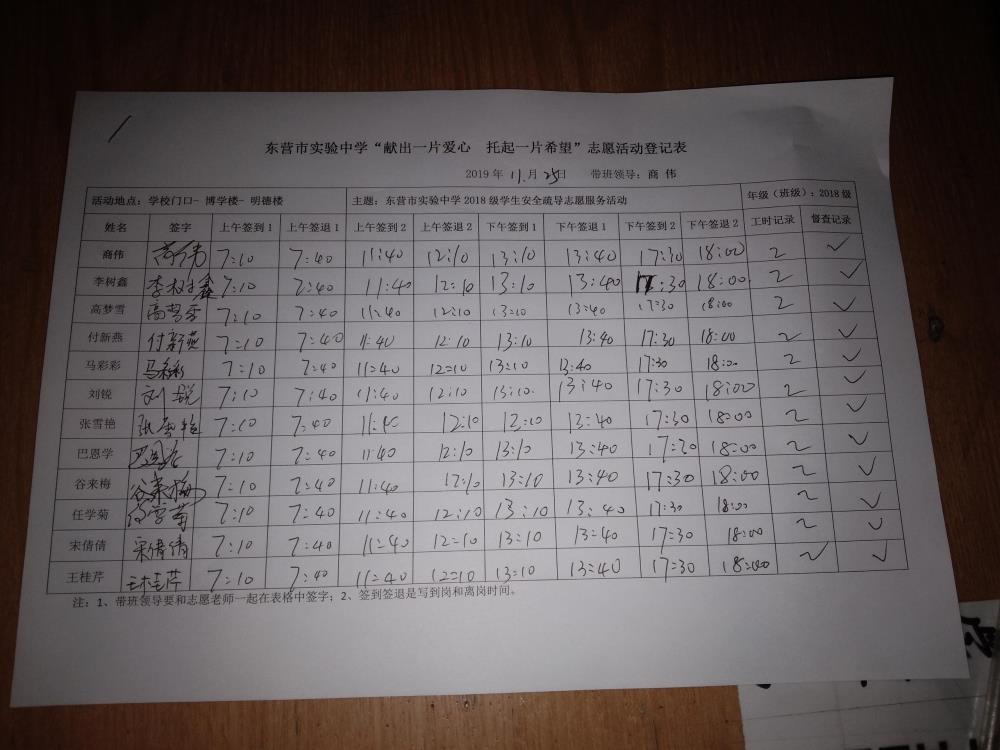 东营市实验中学“献出一片爱心 托起一片希望”志愿活动登记表
2019年 11.月 25日 带班领导：商 伟
活动地点：学校门口- 博学楼- 明德楼 主题：东营市实验中学2018级学生安全疏导志愿服务活动 年级（班级）：2018级
姓名 签字 上午签到1 上午签退1 上午签到2 上午签退2 下午签到1 下午签退1 下午签到2 下午签退2 工时记录 督查记录
商伟 商伟 7:10 7:40 11:40 12:10 13:10 13:40 17:30 18:00 2 ✓
李树鑫 李树鑫 7:10 7:40 11:40 12:10 13:10 13:40 17:30 18:00 2 ✓
高梦雪 高梦雪 7:10 7:40 11:40 12:10 13:10 13:40 17:30 18:00 2 ✓
付新燕 付新燕 7:10 7:40 11:40 12:10 13:10 13:40 17:30 18:00 2 ✓
马彩彩 马彩彩 7:10 7:40 11:40 12:10 13:10 13:40 17:30 18:00 2 ✓
刘锐 刘锐 7:10 7:40 11:40 12:10 13:10 13:40 17:30 18:00 2 ✓
张雪艳 张雪艳 7:10 7:40 11:40 12:10 12:10 13:40 17:30 18:00 2 ✓
巴恩学 巴恩学 7:10 7:40 11:40 12:10 13:10 13:40 17:30 18:00 2 ✓
谷来梅 谷来梅 7:10 7:40 11:40 12:10 13:10 13:40 17:30 18:00 2 ✓
任学菊 任学菊 7:10 7:40 11:40 12:10 13:10 13:40 17:30 18:00 2 ✓
宋倩倩 宋倩倩 7:10 7:40 11:40 12:10 13:10 13:40 17:30 18:00 2 ✓
王桂芹 王桂芹 7:10 7:40 11:40 12:10 13:10 13:40 17:30 18:00 2 ✓
注：1、带班领导要和志愿老师一起在表格中签字；2、签到签退是写到岗和离岗时间。